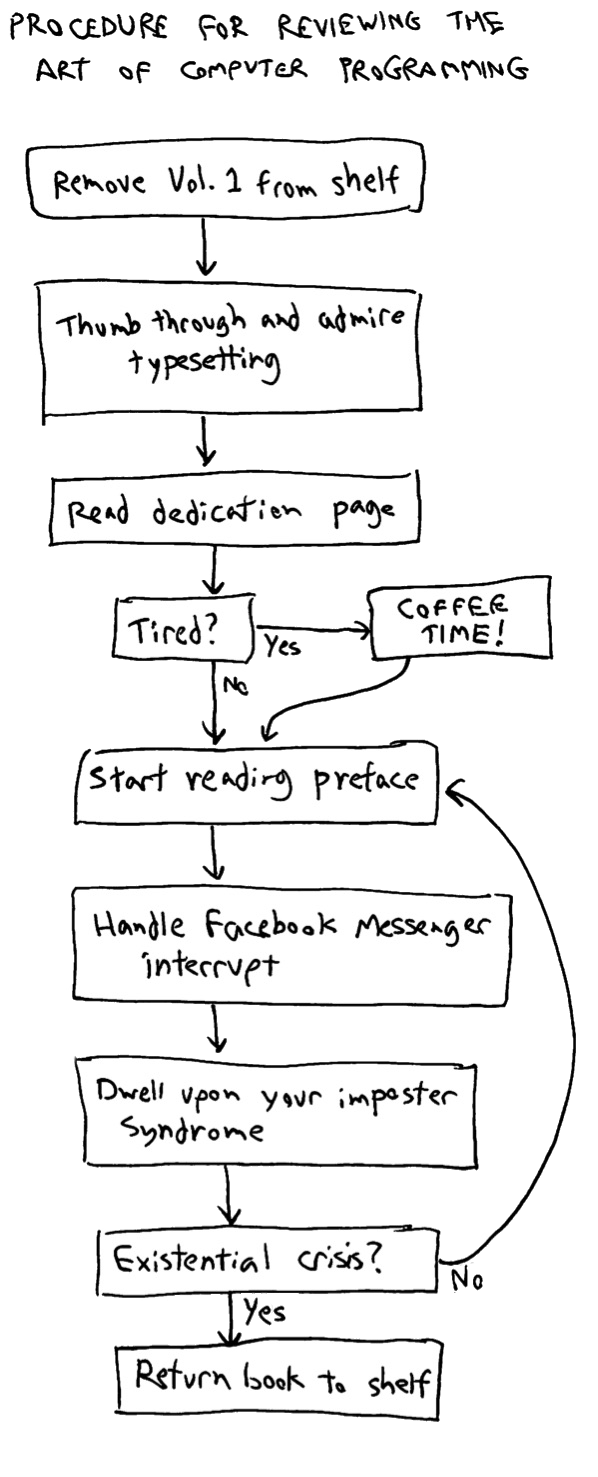 PROCEDURE FOR REVIEWING THE
ART OF COMPUTER PROGRAMMING
Remove Vol. 1 from shelf
Thumb through and admire
typesetting
Read dedication page
Tired?
Yes
COFFEE
TIME!
No
Start reading preface
Handle Facebook Messenger
interrupt
Dwell upon your imposter
Syndrome
Existential crisis?
No
Yes
Return book to shelf